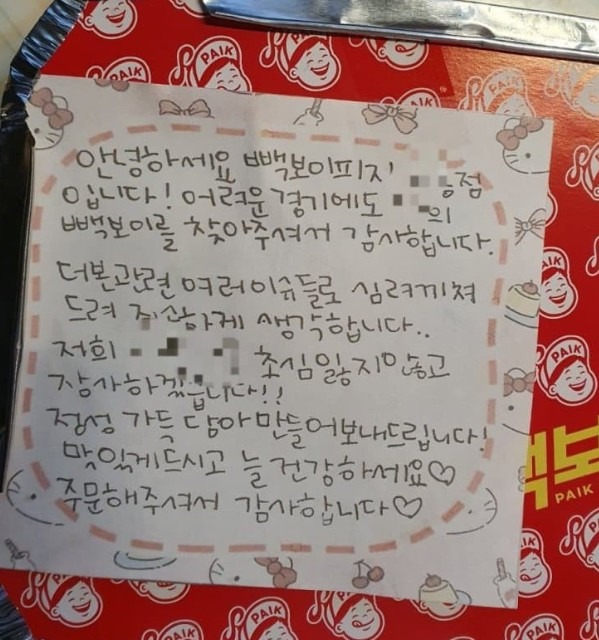 안녕하세요 빽보이피자 점
입니다! 어려운 경기에도 의
빽보이를 찾아주셔서 감사합니다.
더본관련 여러이슈들로 심려끼쳐
드려 죄송하게 생각합니다..
저희 초심 잃지않고
장사하겠습니다!!
정성 가득 담아 만들어보내드립니다!
맛있게드시고 늘 건강하세요♡
주문해주셔서 감사합니다♡
PAIK
PAIK
PAIK
PAIK
PAIK
빽보
PAIK
PAIK
PAIK
PAIK
PAIK